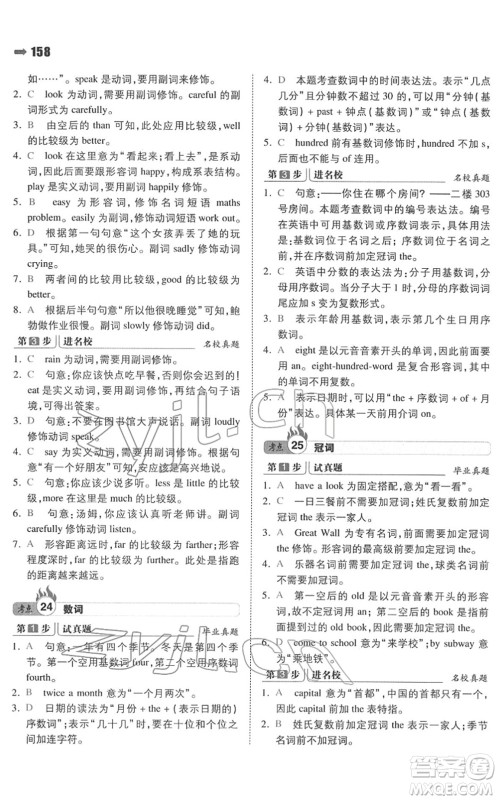 158
如……”。speak 是动词，要用副词修饰。
2. C　look 为动词，需要用副词修饰。careful 的副
词形式为 carefully。
3. B　由空后的 than 可知，此处应用比较级，well
的比较级为 better。
4. C　look 在这里意为“看起来；看上去”，是系动
词，因此后跟形容词 happy 构成系表结构。
jump 是实义动词，要用副词 happily 修饰。
5. B　easy 为形容词，修饰名词短语 maths
problem。easily 为副词，修饰动词短语 work out。
6. D　句意：“这个女孩弄丢了她的玩
具，”可知，她哭的很伤心。副词 sadly 修饰动词
crying。
7. B　两者间的比较用比较级，good 的比较级为
better。
8. A　根据后半句句意“所以他很晚睡觉”可知，鲍
勃做作业很慢。副词 slowly 修饰动词词组。
第 3 步　进名校　名校真题
1. C　rain 为动词，需要用副词修饰。
2. C　句意：你应该快点吃早餐，否则你会迟到的。
eat 是实义动词，要用副词 quickly 修饰。
3. D　句意：不要在图书馆大声说话。副词 loudly
修饰动词。
4. C　say 为动词，需要用副词修饰。
5. D　句意：你应该少喝可乐，因为它对你的健康
有害。less 是 little 的比较级，后跟不可数名词。
6. B　句意：汤姆，你应该认真听讲并且努力学习，
你会有一个好成绩的。hard 意为“努力地”。
7. A　形容距离时，far 的比较级为 farther；形容
程度深时，far 的比较级为 further。此处是指跑
的距离越来越远。
考点 24　数词
第 1 步　试真题　毕业真题
1. A　句意：一年有四个季节，冬天是第四个季
节。第一空用基数词 four，第二空用序数词
fourth。
2. B　twice a month 意为“一个月两次”。
3. D　日期的读法为“月份 + the +（表示日期的）
序数词”；表示“几十几”时，十位和个位之间要加
连字符。
4. D　本题考查数词中的时间表达法。表示“几点
几分”且分钟数不超过 30 的，可以用“分钟（基数
词）+ past + 钟点（基数词）”或“钟点（基数词）+
分钟（基数词）”表达。
5. C　hundred 前有具体的基数词时，hundred 不
加 s，且后不能与 of 连用。
第 3 步　进名校　名校真题
1. C　句意：——你住在哪个房间？——二楼 303
号房间。本题考查数词中的编号表达法。编号
在英语中可用对应的基数词表示，当基数词修
饰名词时，基数词位于名词后面；楼层在英语中
用对应的序数词表示，序数词位于名词前，使用
时一般在序数词前面加定冠词 the。
2. C　英语中分数的表达法为：分子用基数词，分
母用序数词。当分子大于 1 时，分母的序数词词
尾应加 s。
3. B　表示年龄用基数词，表示第几个生日用序
数词。
4. A　eight 是以元音音素开头的单词，前面用
an。eight-hundred-word 是复合形容词，其中
hundred 不加 s。
5. A　表示日期时，可以用定冠词 the + 序数词
表示。
考点 25　冠词
第 1 步　试真题　毕业真题
1. A　have a look 为固定搭配，意为“看一看”。
2. C　一日三餐前不需要加冠词；姓氏复数前加定
冠词 the，表示一家人。
3. A　Great Wall 为专有名词，前面要加定冠
词 the。
4. A　乐器名词前要加定冠词 the，球类名词前不
加冠词。
5. A　第一空后的 old 是以元音音素开头的单词，
此处表泛指，前面要加不定冠词 an。第二空后的
second 是序数词，前面要加定冠词 the。
6. D　come to school 意为“来学校”；by subway 意
为“乘地铁”。
第 3 步　进名校　名校真题
1. A　capital 意为“首都”，中国的首都是特指，前
面要加定冠词 the。
2. B　姓氏复数前加定冠词 the 表示一家人；季节
前不加冠词。
zyjl.cn
答案圈
MXQE.COM